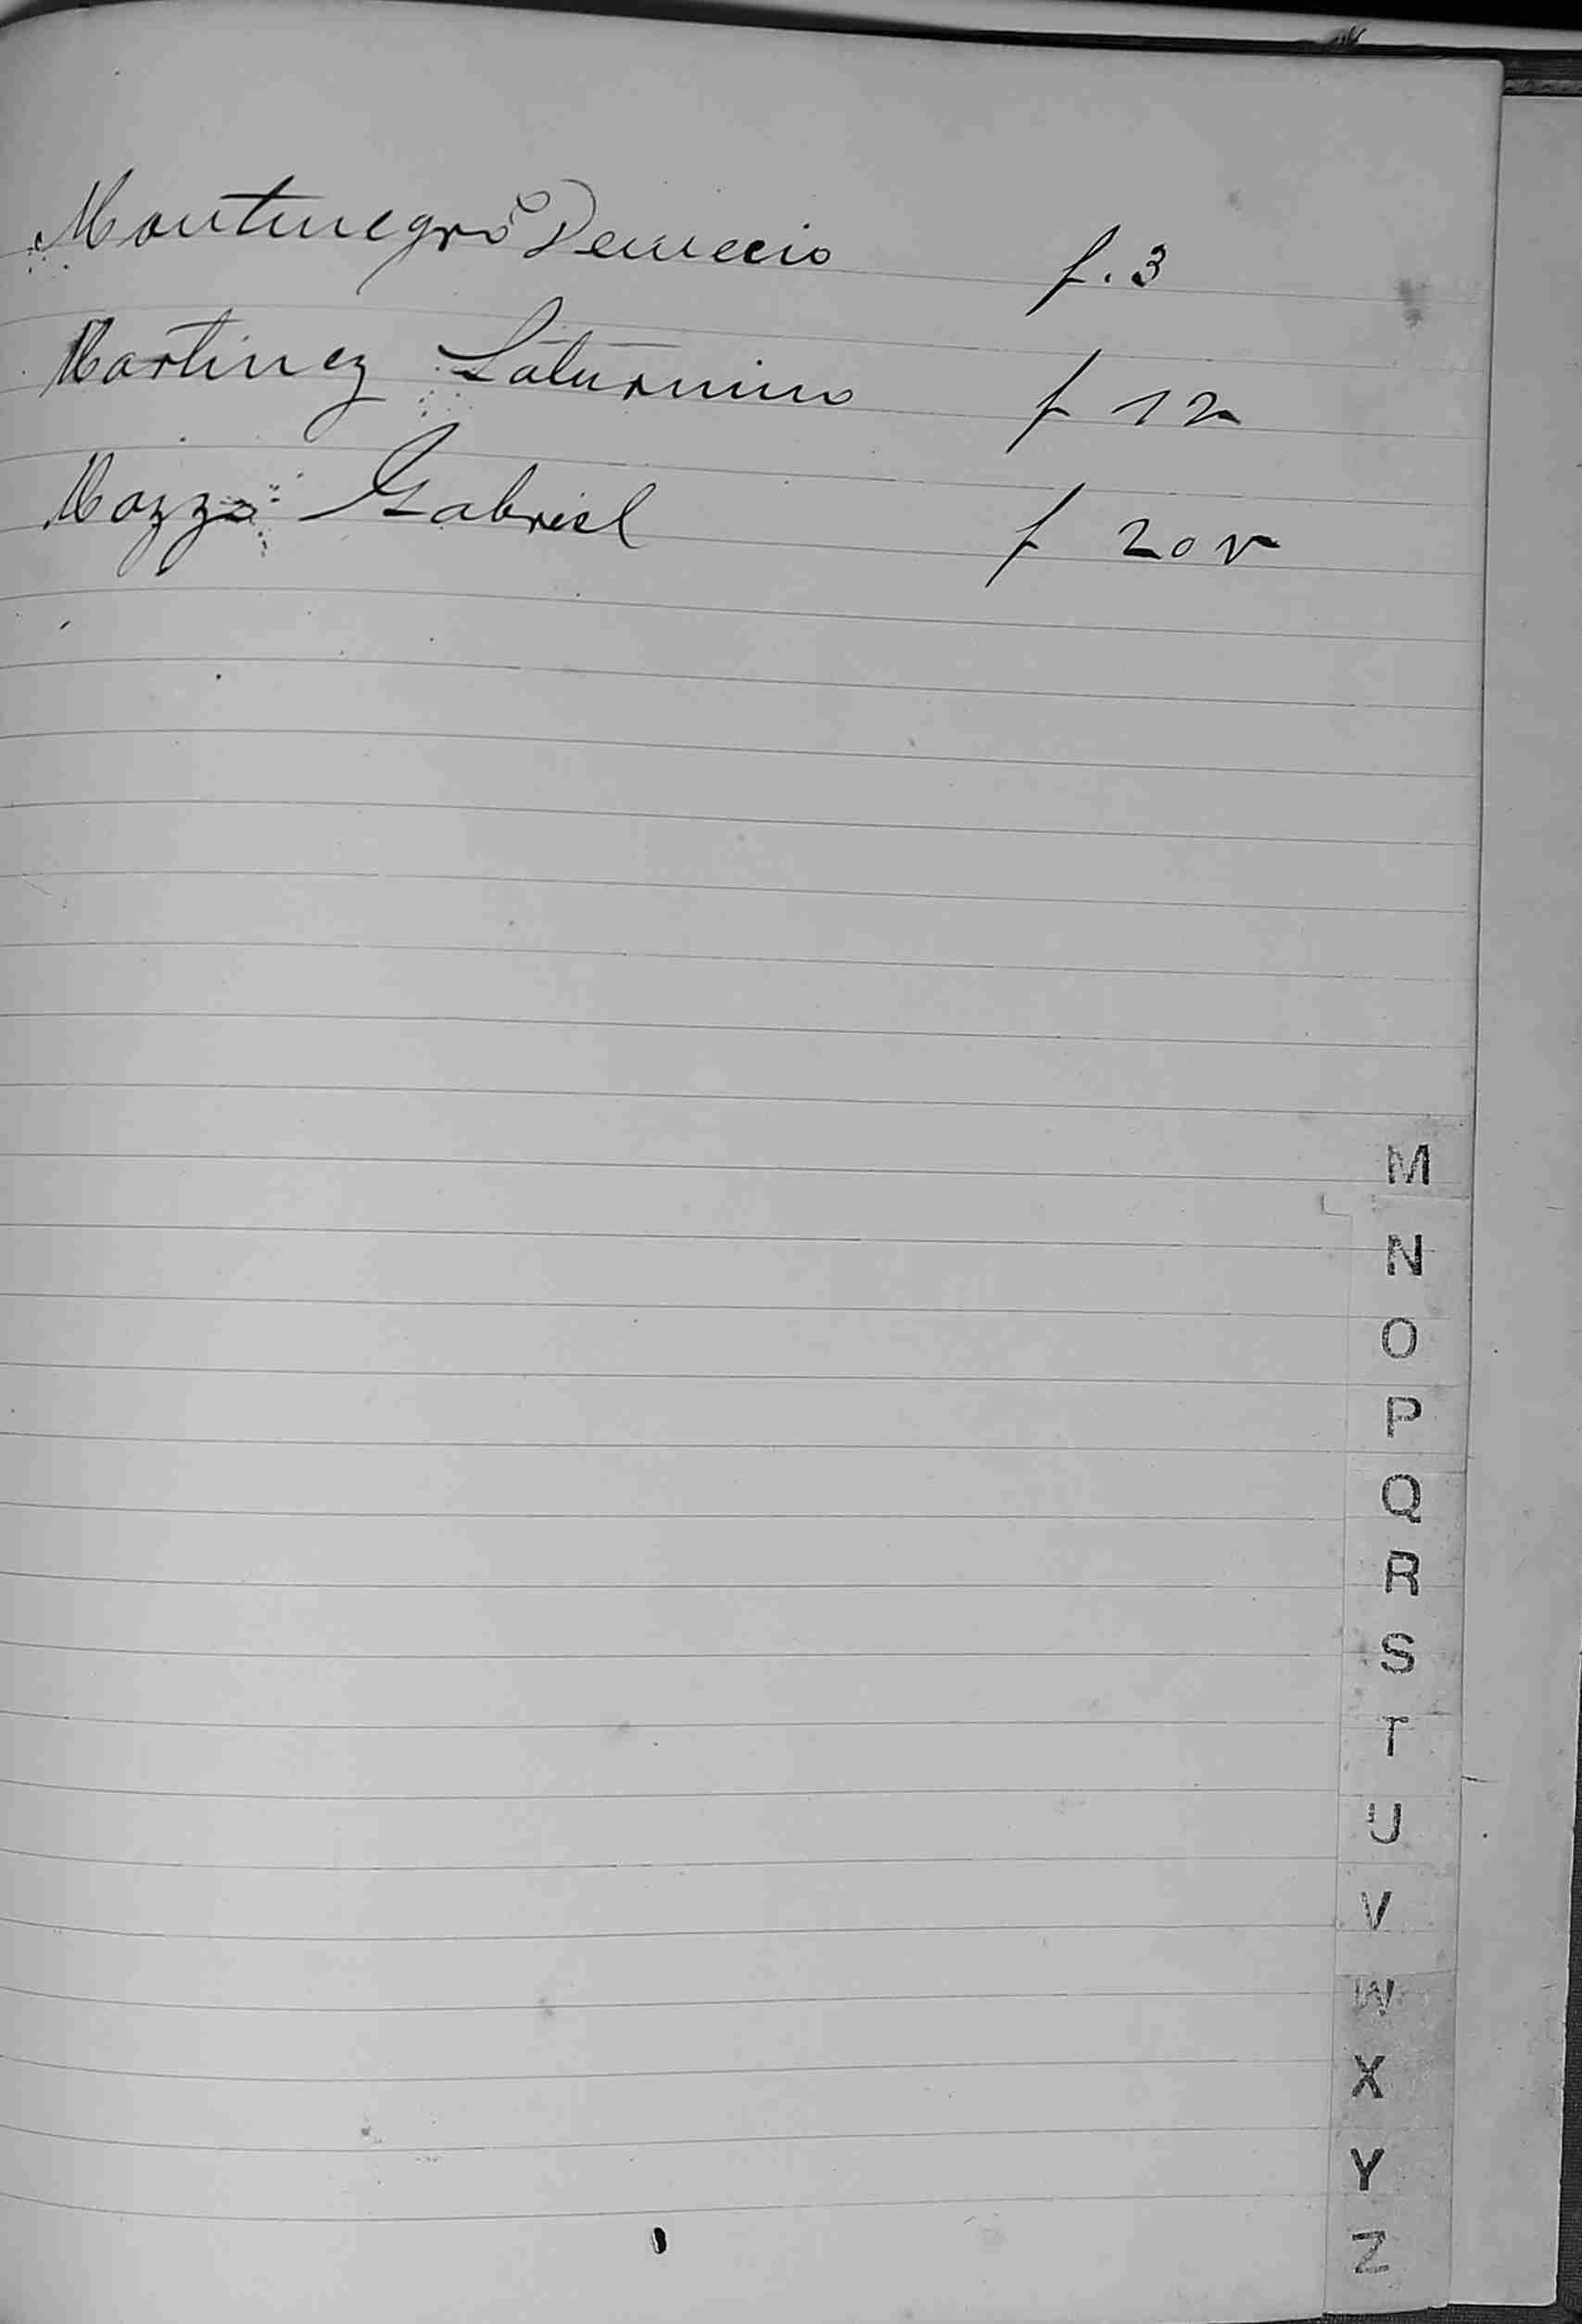 Montenegro Demecio f. 3
Martinez Saturnino f 12
Mazza Gabriel f 20 v
M
N
O
P
Q
R
S
T
U
V
W
X
Y
Z